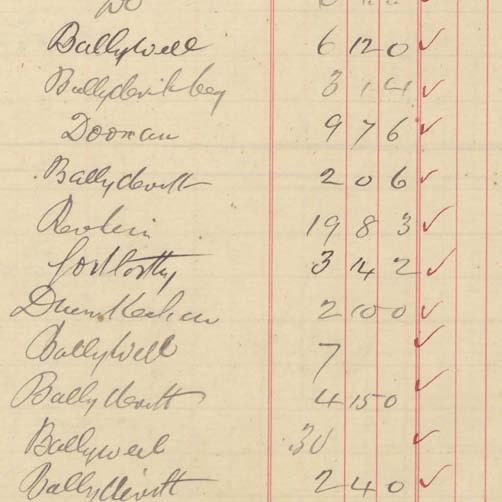 Do
Ballywell 6 12 0 ✓
Ballydevitt beg 3 1 4 ✓
Doonan 9 7 6 ✓
Ballydevitt 2 0 6 ✓
19 8 3 ✓
3 14 2 ✓
2 10 0 ✓
Ballywell 7 ✓
Ballydevitt 4 15 0 ✓
Ballywell 30 ✓
Ballydevitt 2 4 0 ✓